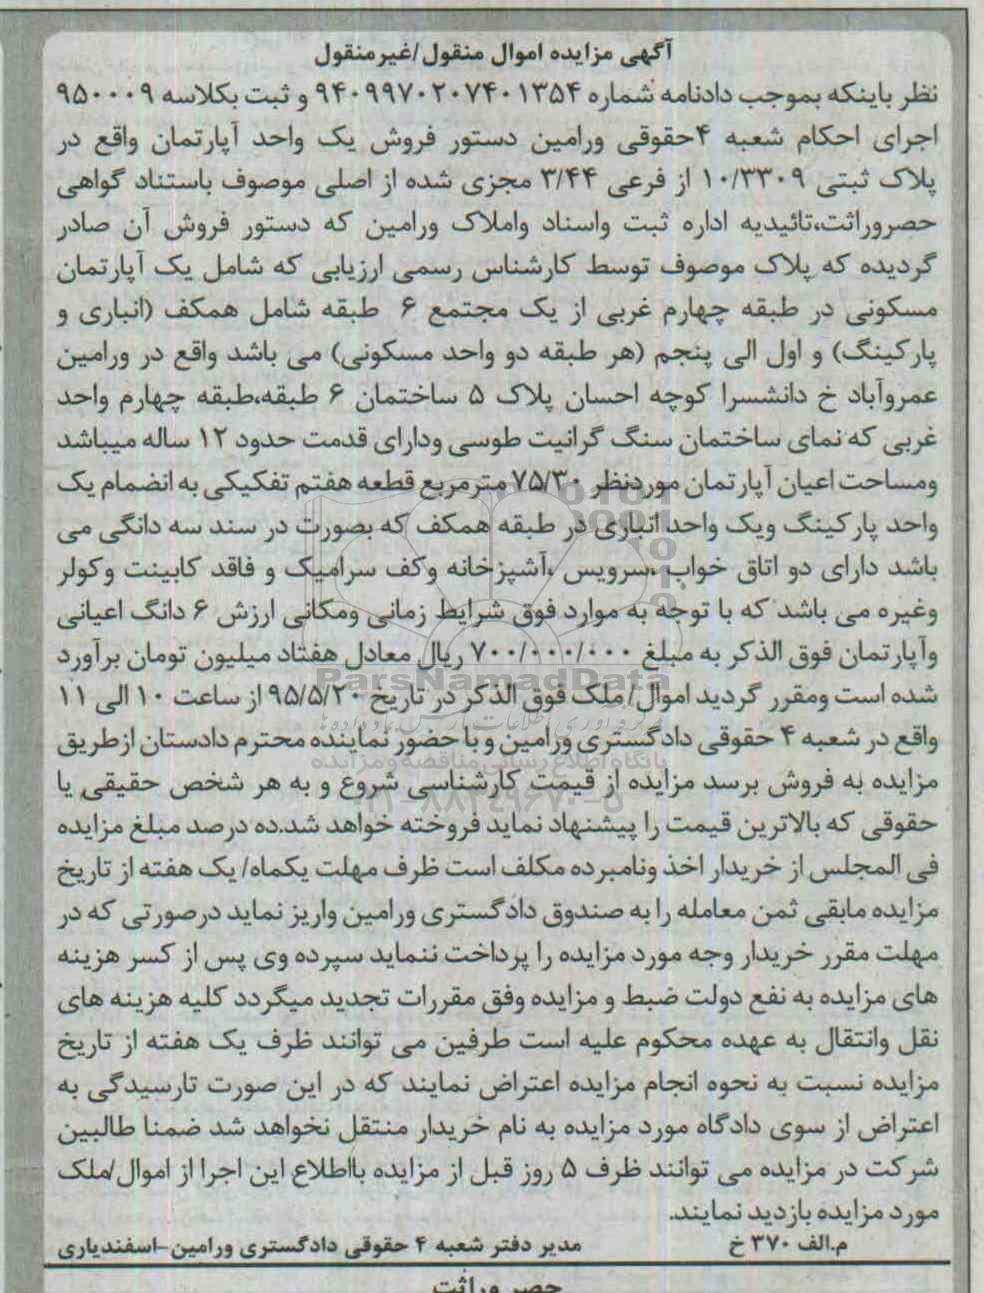 آگهی مزایده اموال منقول/غیرمنقول
نظر باینکه بموجب دادنامه شماره ۹۴۰۹۹۷۰۲۰۷۴۰۱۳۵۴ و ثبت بکلاسه ۹۵۰۰۰۹
اجرای احکام شعبه ۴حقوقی ورامین دستور فروش یک واحد آپارتمان واقع در
پلاک ثبتی ۱۰/۳۳۰۹ از فرعی ۳/۴۴ مجزی شده از اصلی موصوف باستناد گواهی
حصروراثت،تائیدیه اداره ثبت واسناد واملاک ورامین که دستور فروش آن صادر
گردیده که پلاک موصوف توسط کارشناس رسمی ارزیابی که شامل یک آپارتمان
مسکونی در طبقه چهارم غربی از یک مجتمع ۶ طبقه شامل همکف (انباری و
پارکینگ) و اول الی پنجم (هر طبقه دو واحد مسکونی) می باشد واقع در ورامین
عمروآباد خ دانشسرا کوچه احسان پلاک ۵ ساختمان ۶ طبقه،طبقه چهارم واحد
غربی که نمای ساختمان سنگ گرانیت طوسی ودارای قدمت حدود ۱۲ ساله میباشد
ومساحت اعیان آپارتمان موردنظر ۷۵/۳۰ مترمربع قطعه هفتم تفکیکی به انضمام یک
واحد پارکینگ ویک واحد انباری در طبقه همکف که بصورت در سند سه دانگی می
باشد دارای دو اتاق خواب ،سرویس ،آشپزخانه وکف سرامیک و فاقد کابینت وکولر
وغیره می باشد که با توجه به موارد فوق شرایط زمانی ومکانی ارزش ۶ دانگ اعیانی
وآپارتمان فوق الذکر به مبلغ ۷۰۰/۰۰۰/۰۰۰ ریال معادل هفتاد میلیون تومان برآورد
ParsNamadData
شده است ومقرر گردید اموال/ملک فوق الذکر در تاریخ ۹۵/۵/۲۰ از ساعت ۱۰ الی ۱۱
واقع در شعبه ۴ حقوقی دادگستری ورامین و با حضور نماینده محترم دادستان ازطریق
پایگاه اطلاع رسانی مناقصه و مزایده
مزایده به فروش برسد مزایده از قیمت کارشناسی شروع و به هر شخص حقیقی یا
حقوقی که بالاترین قیمت را پیشنهاد نماید فروخته خواهد شد.ده درصد مبلغ مزایده
فی المجلس از خریدار اخذ ونامبرده مکلف است ظرف مهلت یکماه/ یک هفته از تاریخ
مزایده مابقی ثمن معامله را به صندوق دادگستری ورامین واریز نماید درصورتی که در
مهلت مقرر خریدار وجه مورد مزایده را پرداخت ننماید سپرده وی پس از کسر هزینه
های مزایده به نفع دولت ضبط و مزایده وفق مقررات تجدید میگردد کلیه هزینه های
نقل وانتقال به عهده محکوم علیه است طرفین می توانند ظرف یک هفته از تاریخ
مزایده نسبت به نحوه انجام مزایده اعتراض نمایند که در این صورت تارسیدگی به
اعتراض از سوی دادگاه مورد مزایده به نام خریدار منتقل نخواهد شد ضمنا طالبین
شرکت در مزایده می توانند ظرف ۵ روز قبل از مزایده بااطلاع این اجرا از اموال/ملک
مورد مزایده بازدید نمایند.
م.الف ۳۷۰ خ
مدیر دفتر شعبه ۴ حقوقی دادگستری ورامین-اسفندیاری
حصر وراثت